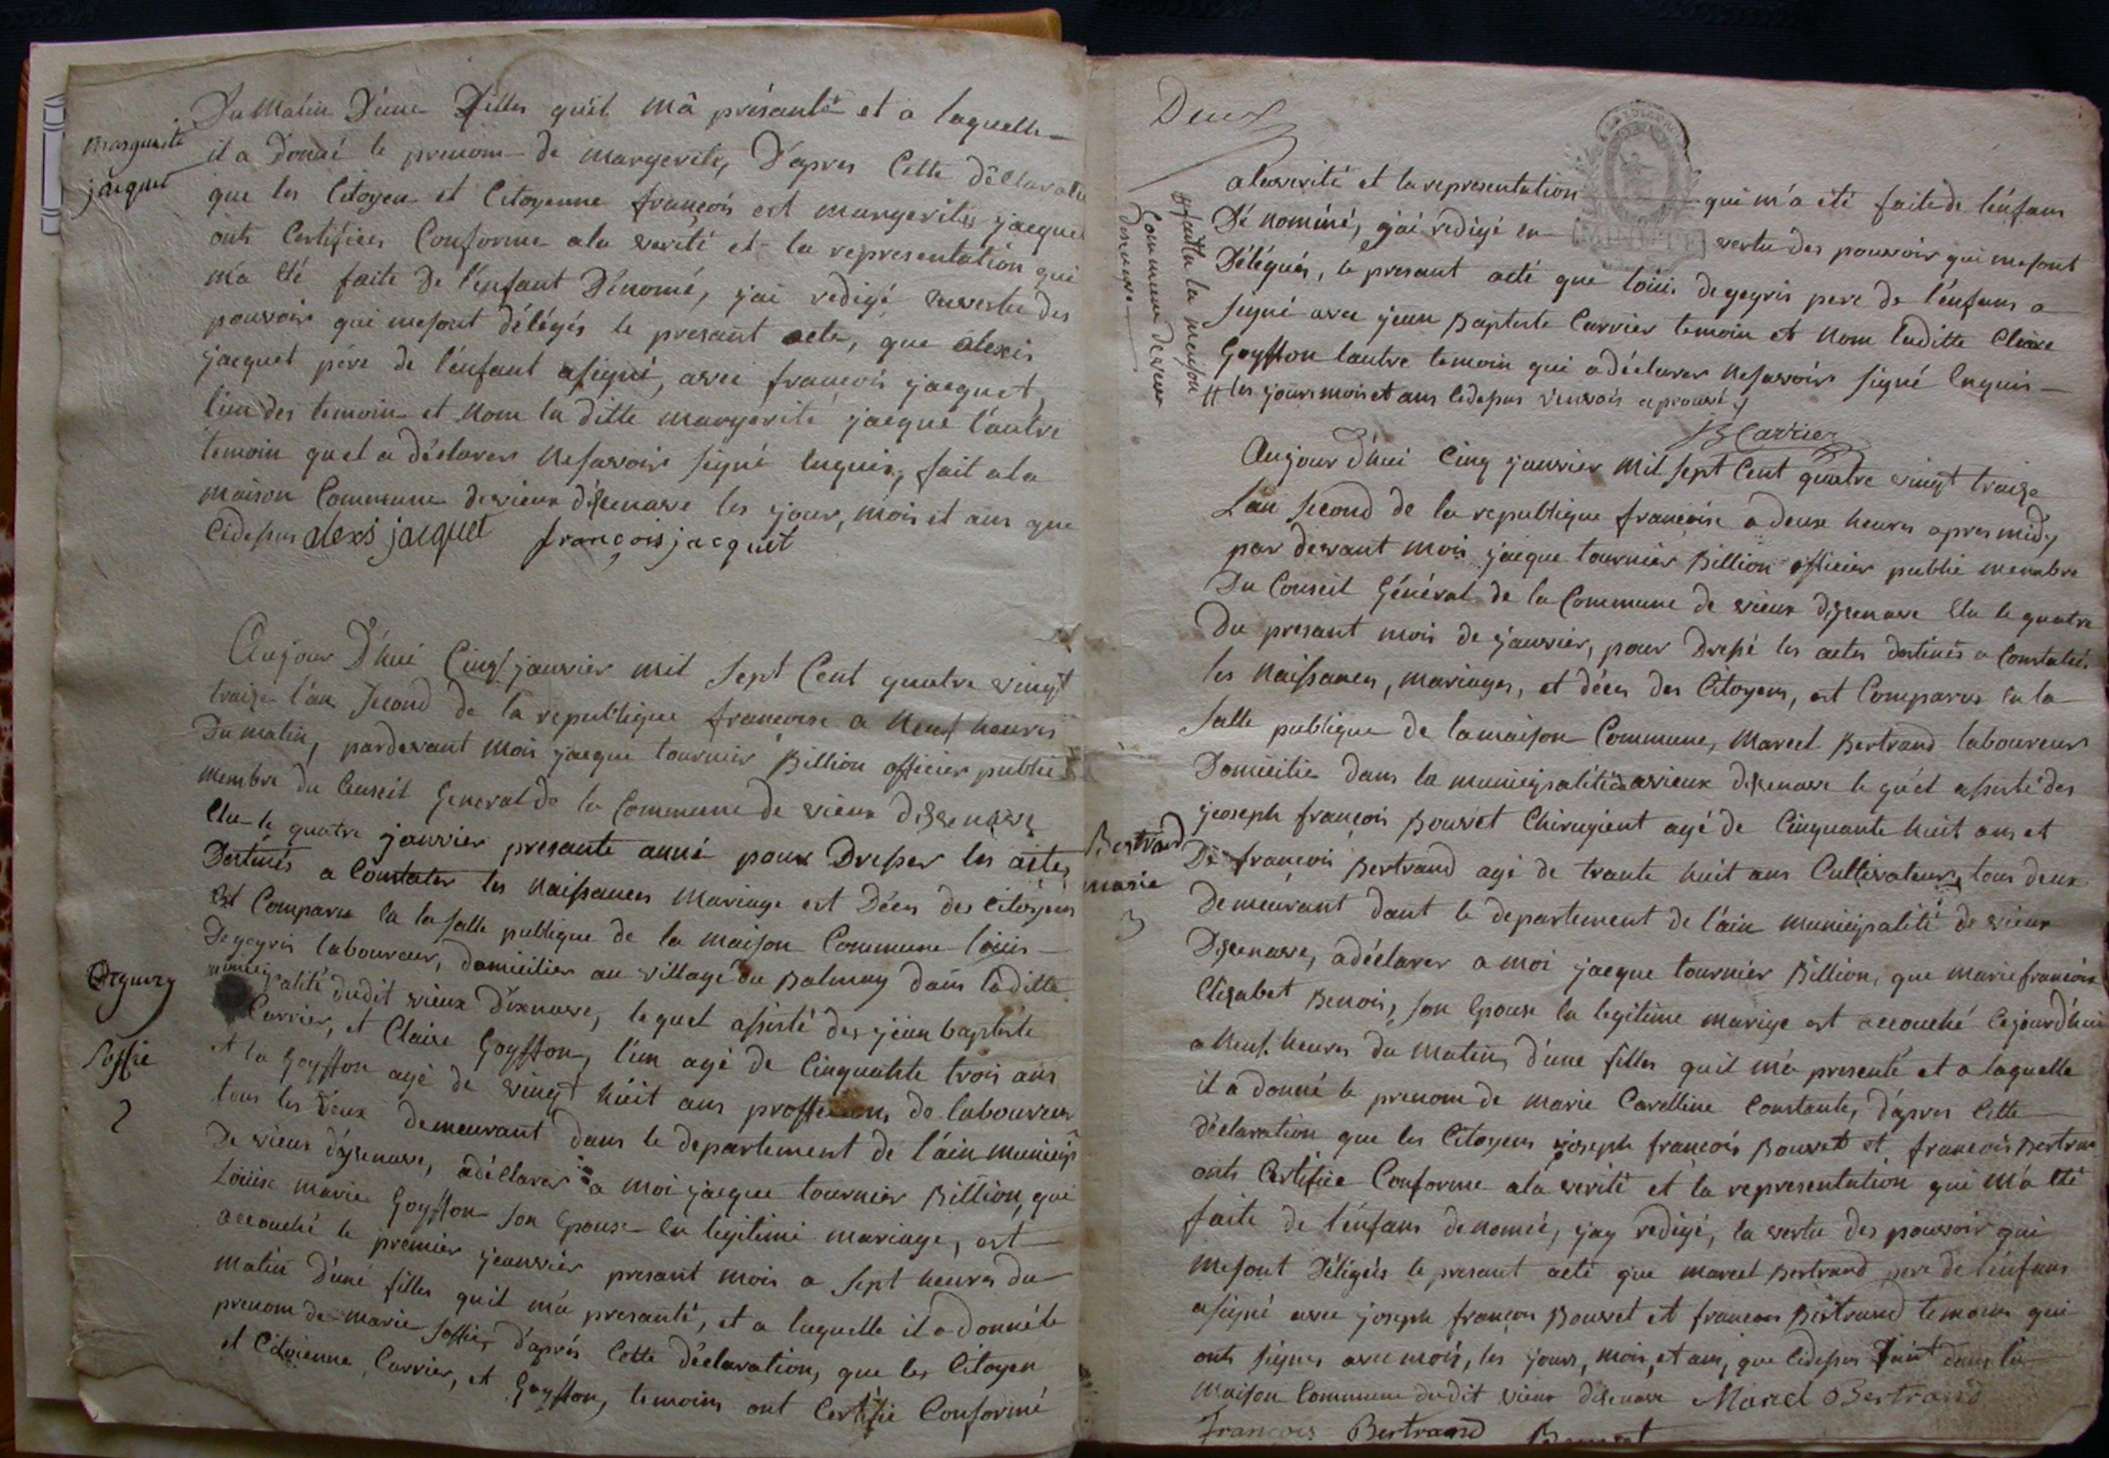 Du Matin D'une filles qu'il m'à présanté et a laquelle
margueritte
jacquet
il a Donné le prenom de margerite, D'apres Cette Déclaration
que les Citoyen et Citoyenne françois est margerites jacque
onts Certifiées Conforme ala verité et la representation qui
m'a été faite De l'enfant Dénomé, jai redigé en vertu des
pouvoir qui mesont délégés le presant acte, que alexis
jacquet pére de l'enfant asigné, avec francois jacquet,
l'un des temoin et Nom la ditte margerite jacque l'autre
temoin quel a déclarer Nesavoir signé enquis, fait ala
maison Commune de vieux d'isenave les jour, mois et ans que
Cidesus alexis jacquet françois jacquet
Aujour D'hui Cinq janvier mil sept Cent quatre vingt
traize l'an second de la republique francoise a Neuf heures
Du matin, pardevant Moi jacque tournier Billion officier public
membre du Conseil General de la Commune de vieux disenave
Elu le quatre janvier presante anné pour Dresser les actes
Destinés a Constater les Naissances Mariage est Déces des Citoyens
Est Comparu en la salle publique de la maison Commune louis
Degeyris laboureur, domicilier au village du Balmay dans laditte
municipalité dudit vieux d'izenave, lequel assisté des jean baptiste
Deguery
Soffie
2
Carrier, et Claire Goyffon, l'un agé de Cinquante trois ans
et la Goyffon agé de vingt huit ans proffessions de laboureur
tous les deux demeurant dans le departement de l'ain municip
De vieux d'ysenave, adéclarer a moi jacque tournier Billion, que
Loüise marie Goyffon son Epouse en legitime mariage, est
accouché le premier jeanvier presant mois a sept heures du
matin d'uné filles qu'il m'a presanté, et a laquelle il a donné le
prenom de marie Soffie, d'aprés Cette déclaration, que les Citoyen
et Citoienne Carrier, et Goyffon, temoins ont Certifié Conformé
Deux
alaverité et la representation qui m'a été faite de l'énfans
Dé nominé, jai rédigé en vertu des pouvoir qui mesont
Délégués, le presant acté que loüis degeyris pere de l'enfans a
signé avec jean Baptiste Carrier temoin et Nom laditte Claire
Goyffon lautre temoin qui adéclarer Nesavoir signé Enquis
# les jours mois et ans Cidesus renvois aprouvé
# fait a la maison
Commune de vieux
disenave
JB Carrier
Aujour d'hui Cinq janvier Mil sept Cent quatre vingt traize
L'an second de la republique francoise a deux heures apres midy
par devant moi jacque tournier Billion officier public membre
Du Conseil Général de la Commune de vieux disenave Elu le quatre
Du presant mois de janvier, pour Dressé les actes destinés a Constater
les Naissances, mariages, et déces des Citoyens, est Comparus en la
salle publique de lamaison Commune, Marcel Bertrand laboureur
Domicilie dans la municipalité de vieux disenave le quel assisté des
joseph françois Bouvet Chirugient agé de Cinquante huit ans et
Bertrand
marie
3
De francois Bertrand agé de trante huit ans Cultivateurs, tous deux
Demeurant dant le departement de l'ain municipalité de vieux
Disenave, adéclarer a moi jacque tournier Billion, que marie francoise
Elisabet Benoit, son Epouse en legitime mariage est accouché cejourd'hui
a Neuf heures du matin, d'une filles quil m'à presenté et a laquelle
il a donné le prenom de marie Carolline Constante, d'apres Cette
Déclaration que les Citoyens joseph francois Bouvet et francois Bertran
onts Certifiée Conforme ala verité et la representation qui m'à été
faite de l'énfans denomée, jay redigé, en vertu des pouvoir qui
mesont déligés le presant acté que marcel Bertrand pere de l'énfans
asigné avec joseph francois Bouvet et francois Bertrand temoins qui
onts signés avec moi, les jours, mois, et an, que Cidesus fait dans la
maison Commune dudit vieux disenave Marcel Bertrand
francois Bertrand Bouvet